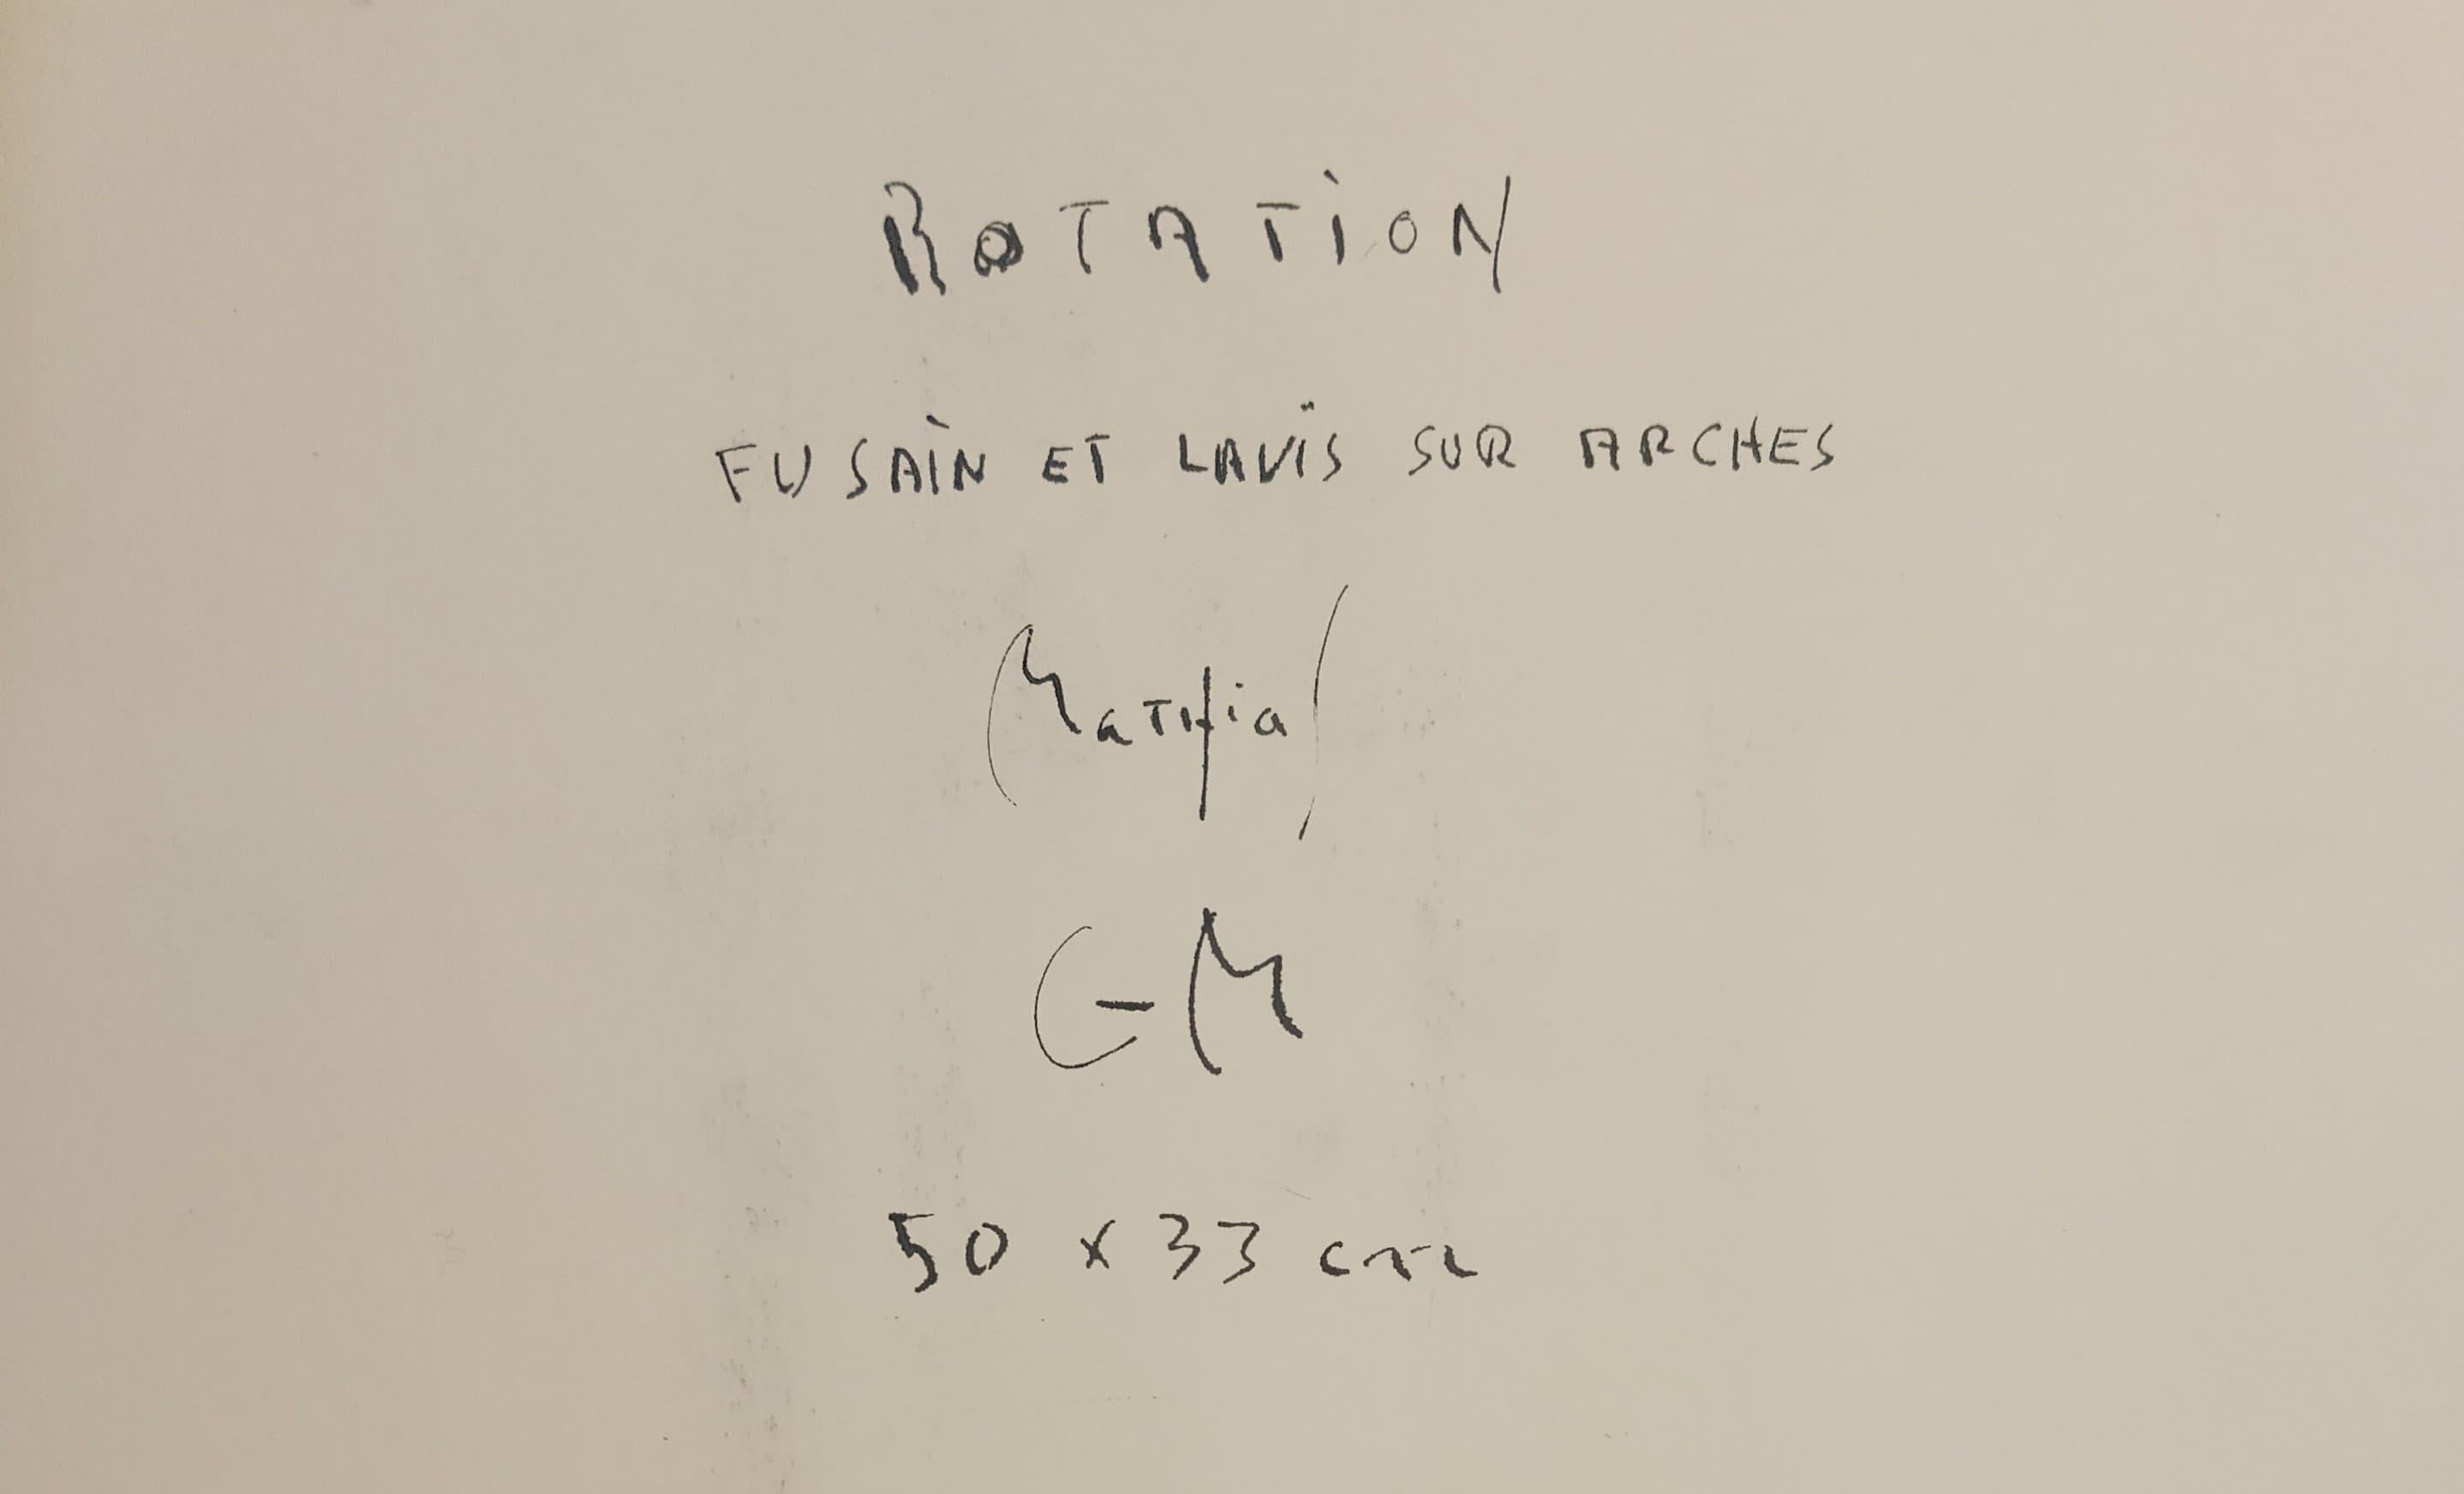 ROTATION
FUSAIN ET LAVIS SUR ARCHES
Mathia
GM
50 x 33 cm